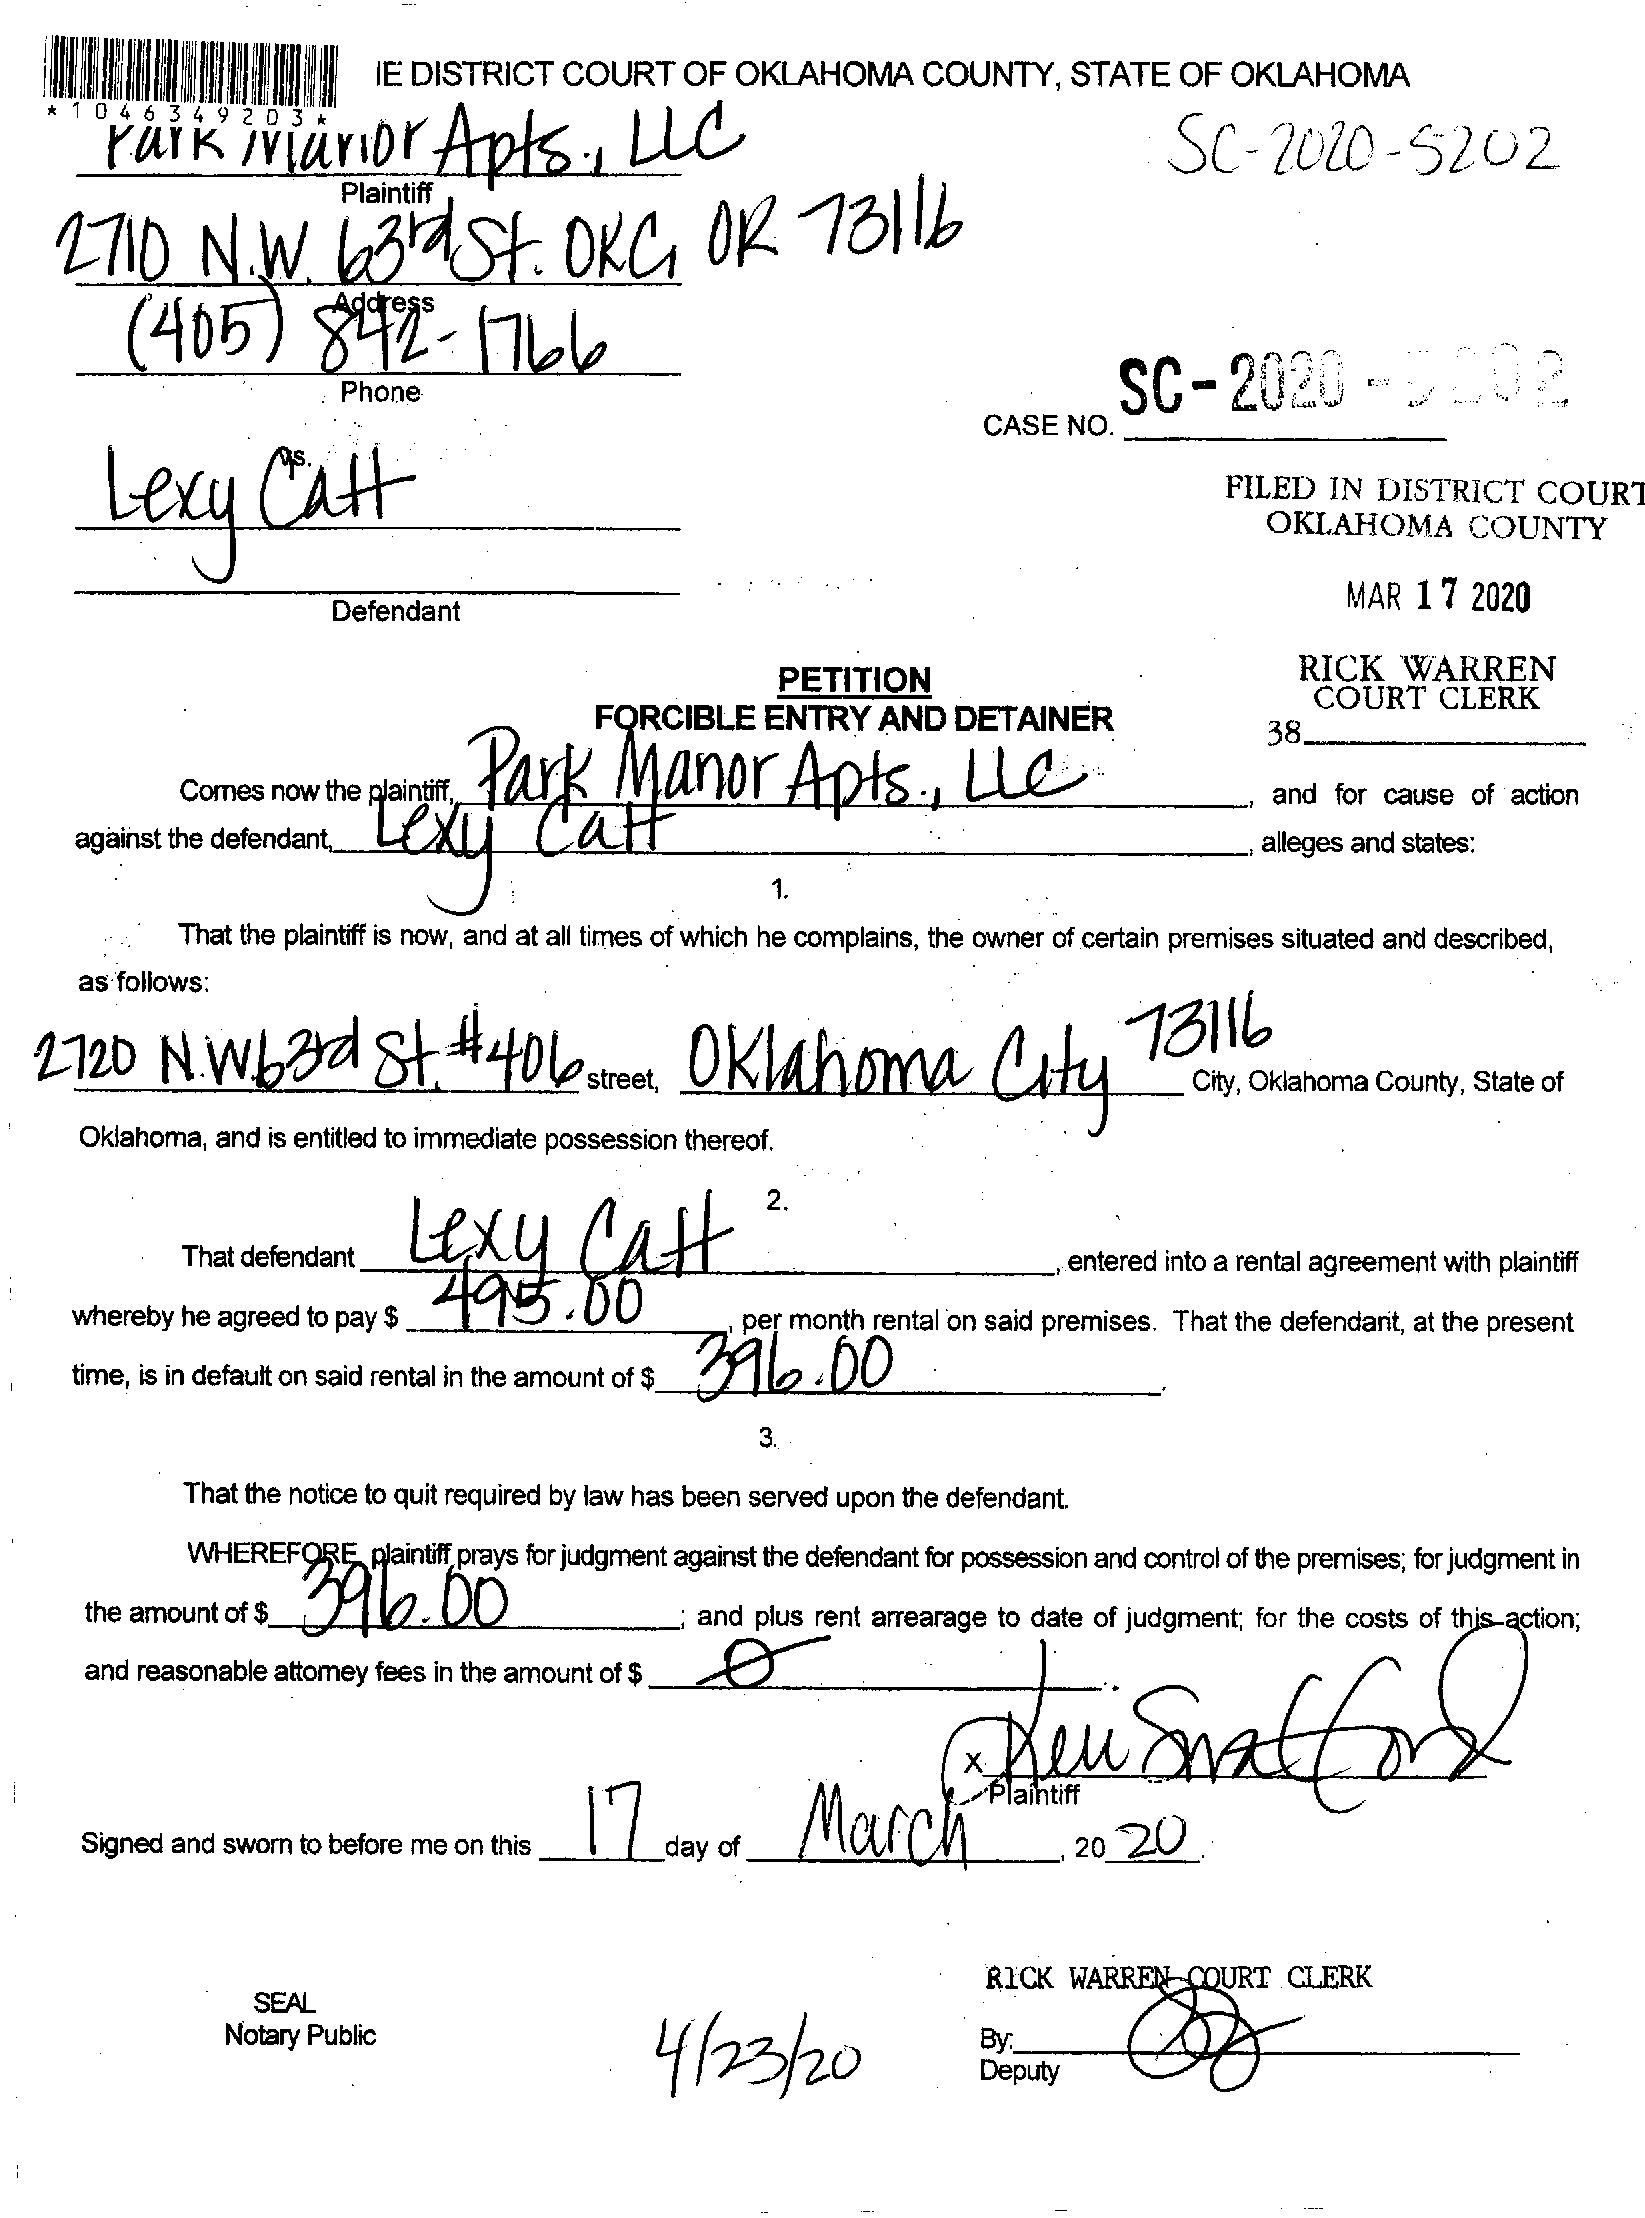 IE DISTRICT COURT OF OKLAHOMA COUNTY, STATE OF OKLAHOMA
*1046349203*
Park Manor Apts., LLC
SC-2020-5202
Plaintiff
2710 N.W. 63rd St. OKC, OK 73116
Address
(405) 842-1766
Phone
CASE NO. SC-2020-5202
vs.
Lexy Catt
FILED IN DISTRICT COURT
OKLAHOMA COUNTY
Defendant
MAR 17 2020
RICK WARREN
COURT CLERK
38
PETITION
FORCIBLE ENTRY AND DETAINER
Comes now the plaintiff, Park Manor Apts., LLC, and for cause of action
against the defendant, Lexy Catt, alleges and states:
1.
That the plaintiff is now, and at all times of which he complains, the owner of certain premises situated and described,
as follows:
2720 N.W. 63rd St. #406 street, Oklahoma City 73116 City, Oklahoma County, State of
Oklahoma, and is entitled to immediate possession thereof.
2.
That defendant Lexy Catt, entered into a rental agreement with plaintiff
whereby he agreed to pay $ 495.00, per month rental on said premises. That the defendant, at the present
time, is in default on said rental in the amount of $ 396.00.
3.
That the notice to quit required by law has been served upon the defendant.
WHEREFORE, plaintiff prays for judgment against the defendant for possession and control of the premises; for judgment in
the amount of $ 396.00; and plus rent arrearage to date of judgment; for the costs of this action;
and reasonable attorney fees in the amount of $ 0.
x
Plaintiff
Signed and sworn to before me on this 17 day of March, 20 20.
RICK WARREN COURT CLERK
SEAL
Notary Public
4/23/20
By:
Deputy